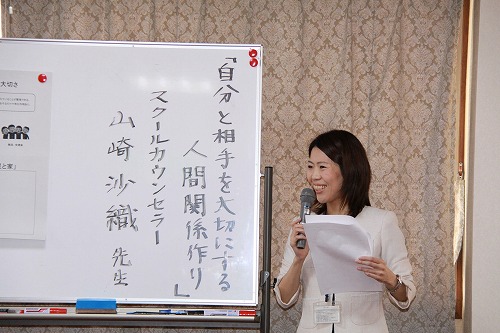 「自分と相手を大切にする
人間関係作り」
スクールカウンセラー
山崎沙織先生
大切さ